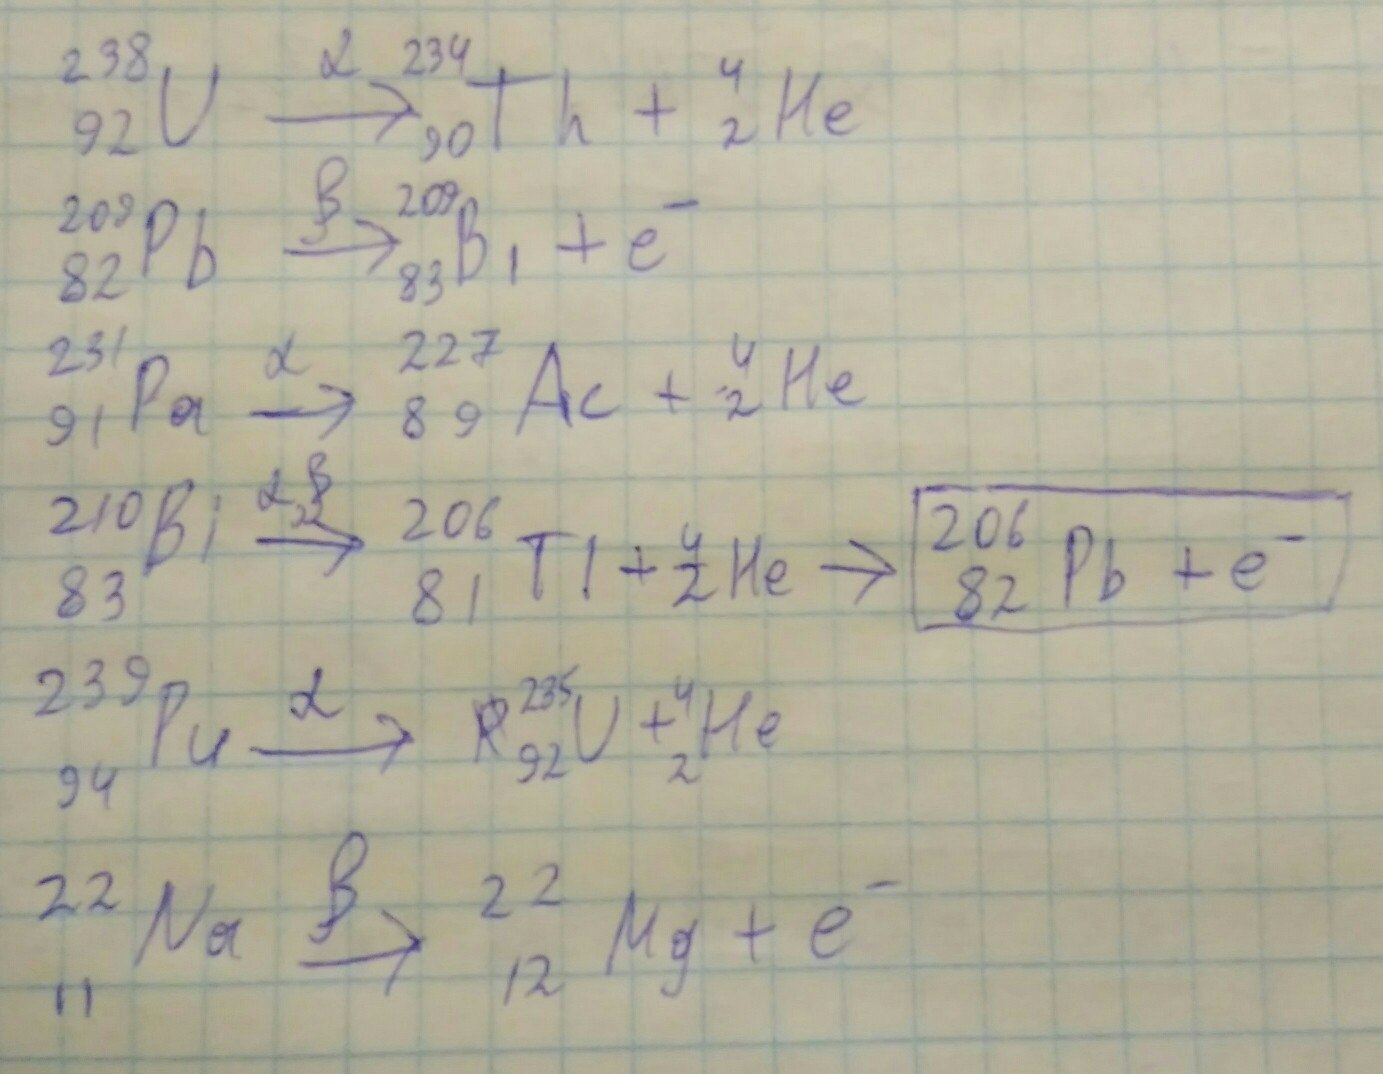 ²³⁸₉₂U →(α) ²³⁴₉₀Th + ⁴₂He
²⁰⁹₈₂Pb →(β) ²⁰⁹₈₃Bi + e⁻
²³¹₉₁Pa →(α) ²²⁷₈₉Ac + ⁴₂He
²¹⁰₈₃Bi →(α, β) ²⁰⁶₈₁Tl + ⁴₂He → ²⁰⁶₈₂Pb + e⁻
²³⁹₉₄Pu →(α) ²³⁵₉₂U + ⁴₂He
²²₁₁Na →(β) ²²₁₂Mg + e⁻